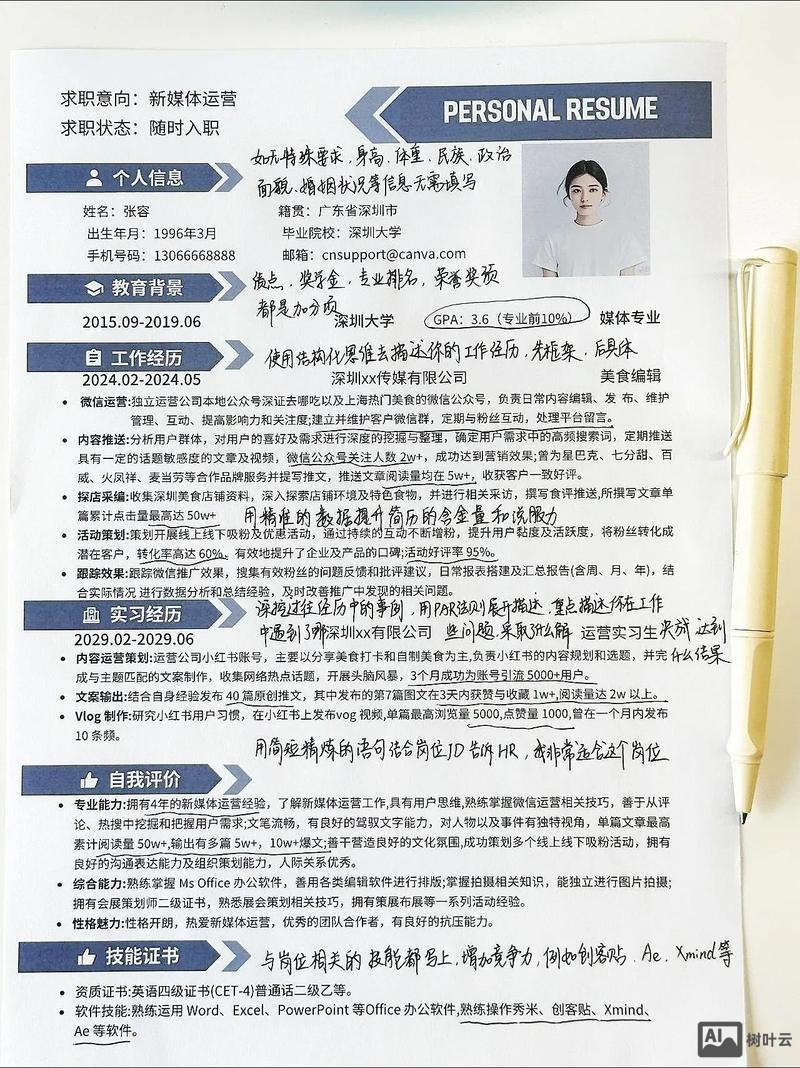 求职意向：新媒体运营
求职状态：随时入职
PERSONAL RESUME
如无特殊要求，身高、体重、民族、政治
面貌、婚姻状况等信息无需填写
个人信息
姓名：张容
籍贯：广东省深圳市
出生年月：1996年3月
毕业院校：深圳大学
手机号码：13066668888
邮箱：cnsupport@canva.com
教育背景
绩点、奖学金，专业排名，荣誉奖项
都是加分项
2015.09-2019.06
深圳大学
GPA：3.6（专业前10%）
媒体专业
工作经历
使用结构化思维去描述你的工作经历，先框架，后具体
2024.02-2024.05
深圳xx传媒有限公司
美食编辑
• 微信运营:独立运营公司本地公众号深证去哪吃以及上海热门美食的微信公众号，负责日常内容编辑、发 布、维护
管理、互动、提高影响力和关注度;建立并维护客户微信群，定期与粉丝互动，处理平台留言。
• 内容推送:分析用户群体，对用户的喜好及需求进行深度的挖掘与整理，确定用户需求中的高频搜索词，定期推送
具有一定的话题敏感度的文章及视频，微信公众号关注人数 2w+，成功达到营销效果;曾为星巴克、七分甜、百
威、火凤祥、麦当劳等合作品牌服务并提写推文，推送文章阅读量均在 5w+，收获客户一致好评。
• 探店采编:收集深圳美食店铺资料，深入探索店铺环境及特色食物，并进行相关采访，撰写食评推送,所撰写文章单
篇累计点击量最高达 50w+
用精准的数据提升简历的含金量和说服力
• 活动策划:策划开展线上线下吸粉及优惠活动，通过持续的互动不断增粉，提升用户黏度及活跃度，将粉丝转化成
潜在客户，转化率高达 60%，有效地提升了企业及产品的口碑;活动好评率 95%。
• 跟踪效果:跟踪微信推广效果，搜集有效粉丝的问题反馈和批评建议，日常报表搭建及汇总报告(含周、月、年)，结
合实际情况 进行数据分析和总结经验，及时改善推广中发现的相关问题。
实习经历
深挖过往经历中的事例，用PAR法则展开描述，重点描述你在工作
中遇到了哪些问题，采取了什么解决 达到
什么结果
2029.02-2029.06
深圳xx有限公司
运营实习生
• 内容运营策划:运营公司小红书账号，主要以分享美食打卡和自制美食为主,负责小红书的内容规划和选题，并完
成与主题匹配的文案制作，收集网络热点话题，开展头脑风暴，3个月成功为账号引流 5000+用户。
• 文案输出:结合自身经验发布 40 篇原创推文，其中发布的第7篇图文在3天内获赞与收藏 1w+,阅读量达 2w 以上。
• Vlog 制作:研究小红书用户习惯，在小红书上发布vog 视频,单篇最高浏览量 5000,点赞量 1000,曾在一个月内发布
10 条频。
用简短精炼的语句结合岗位JD 告诉 HR，我非常适合这个岗位
自我评价
• 专业能力:拥有4年的新媒体运营经验，了解新媒体运营工作,具有用户思维,熟练掌握微信运营相关技巧，善于从评
论、热搜中挖掘和把握用户需求;文笔流畅，有良好的驾驭文字能力，对人物以及事件有独特视角，单篇文章最高
累计阅读量 50w+,输出有多篇 5w+，10w+爆文;善于营造良好的文化氛围,成功策划多个线上线下吸粉活动，拥有
良好的沟通表达能力及组织策划能力，人际关系优秀。
• 综合能力:熟练掌握 Ms Office 办公软件，善用各类编辑软件进行排版;掌握拍摄相关知识，能独立进行图片拍摄;
拥有会展策划师二级证书，熟悉展会策划相关技巧，拥有策展布展等一系列活动经验。
• 性格魅力:性格开朗，热爱新媒体运营，优秀的团队合作者，有良好的抗压能力。
技能证书
与岗位相关的技能都写上，增加竞争力，例如创客贴、Ae、Xmind等
• 资质证书:英语四级证书(CET-4)普通话二级乙等。
• 软件技能:熟练运用 Word、Excel、PowerPoint 等Office 办公软件,熟练操作秀米、创客贴、Xmind、
Ae 等软件。
AI 树叶云